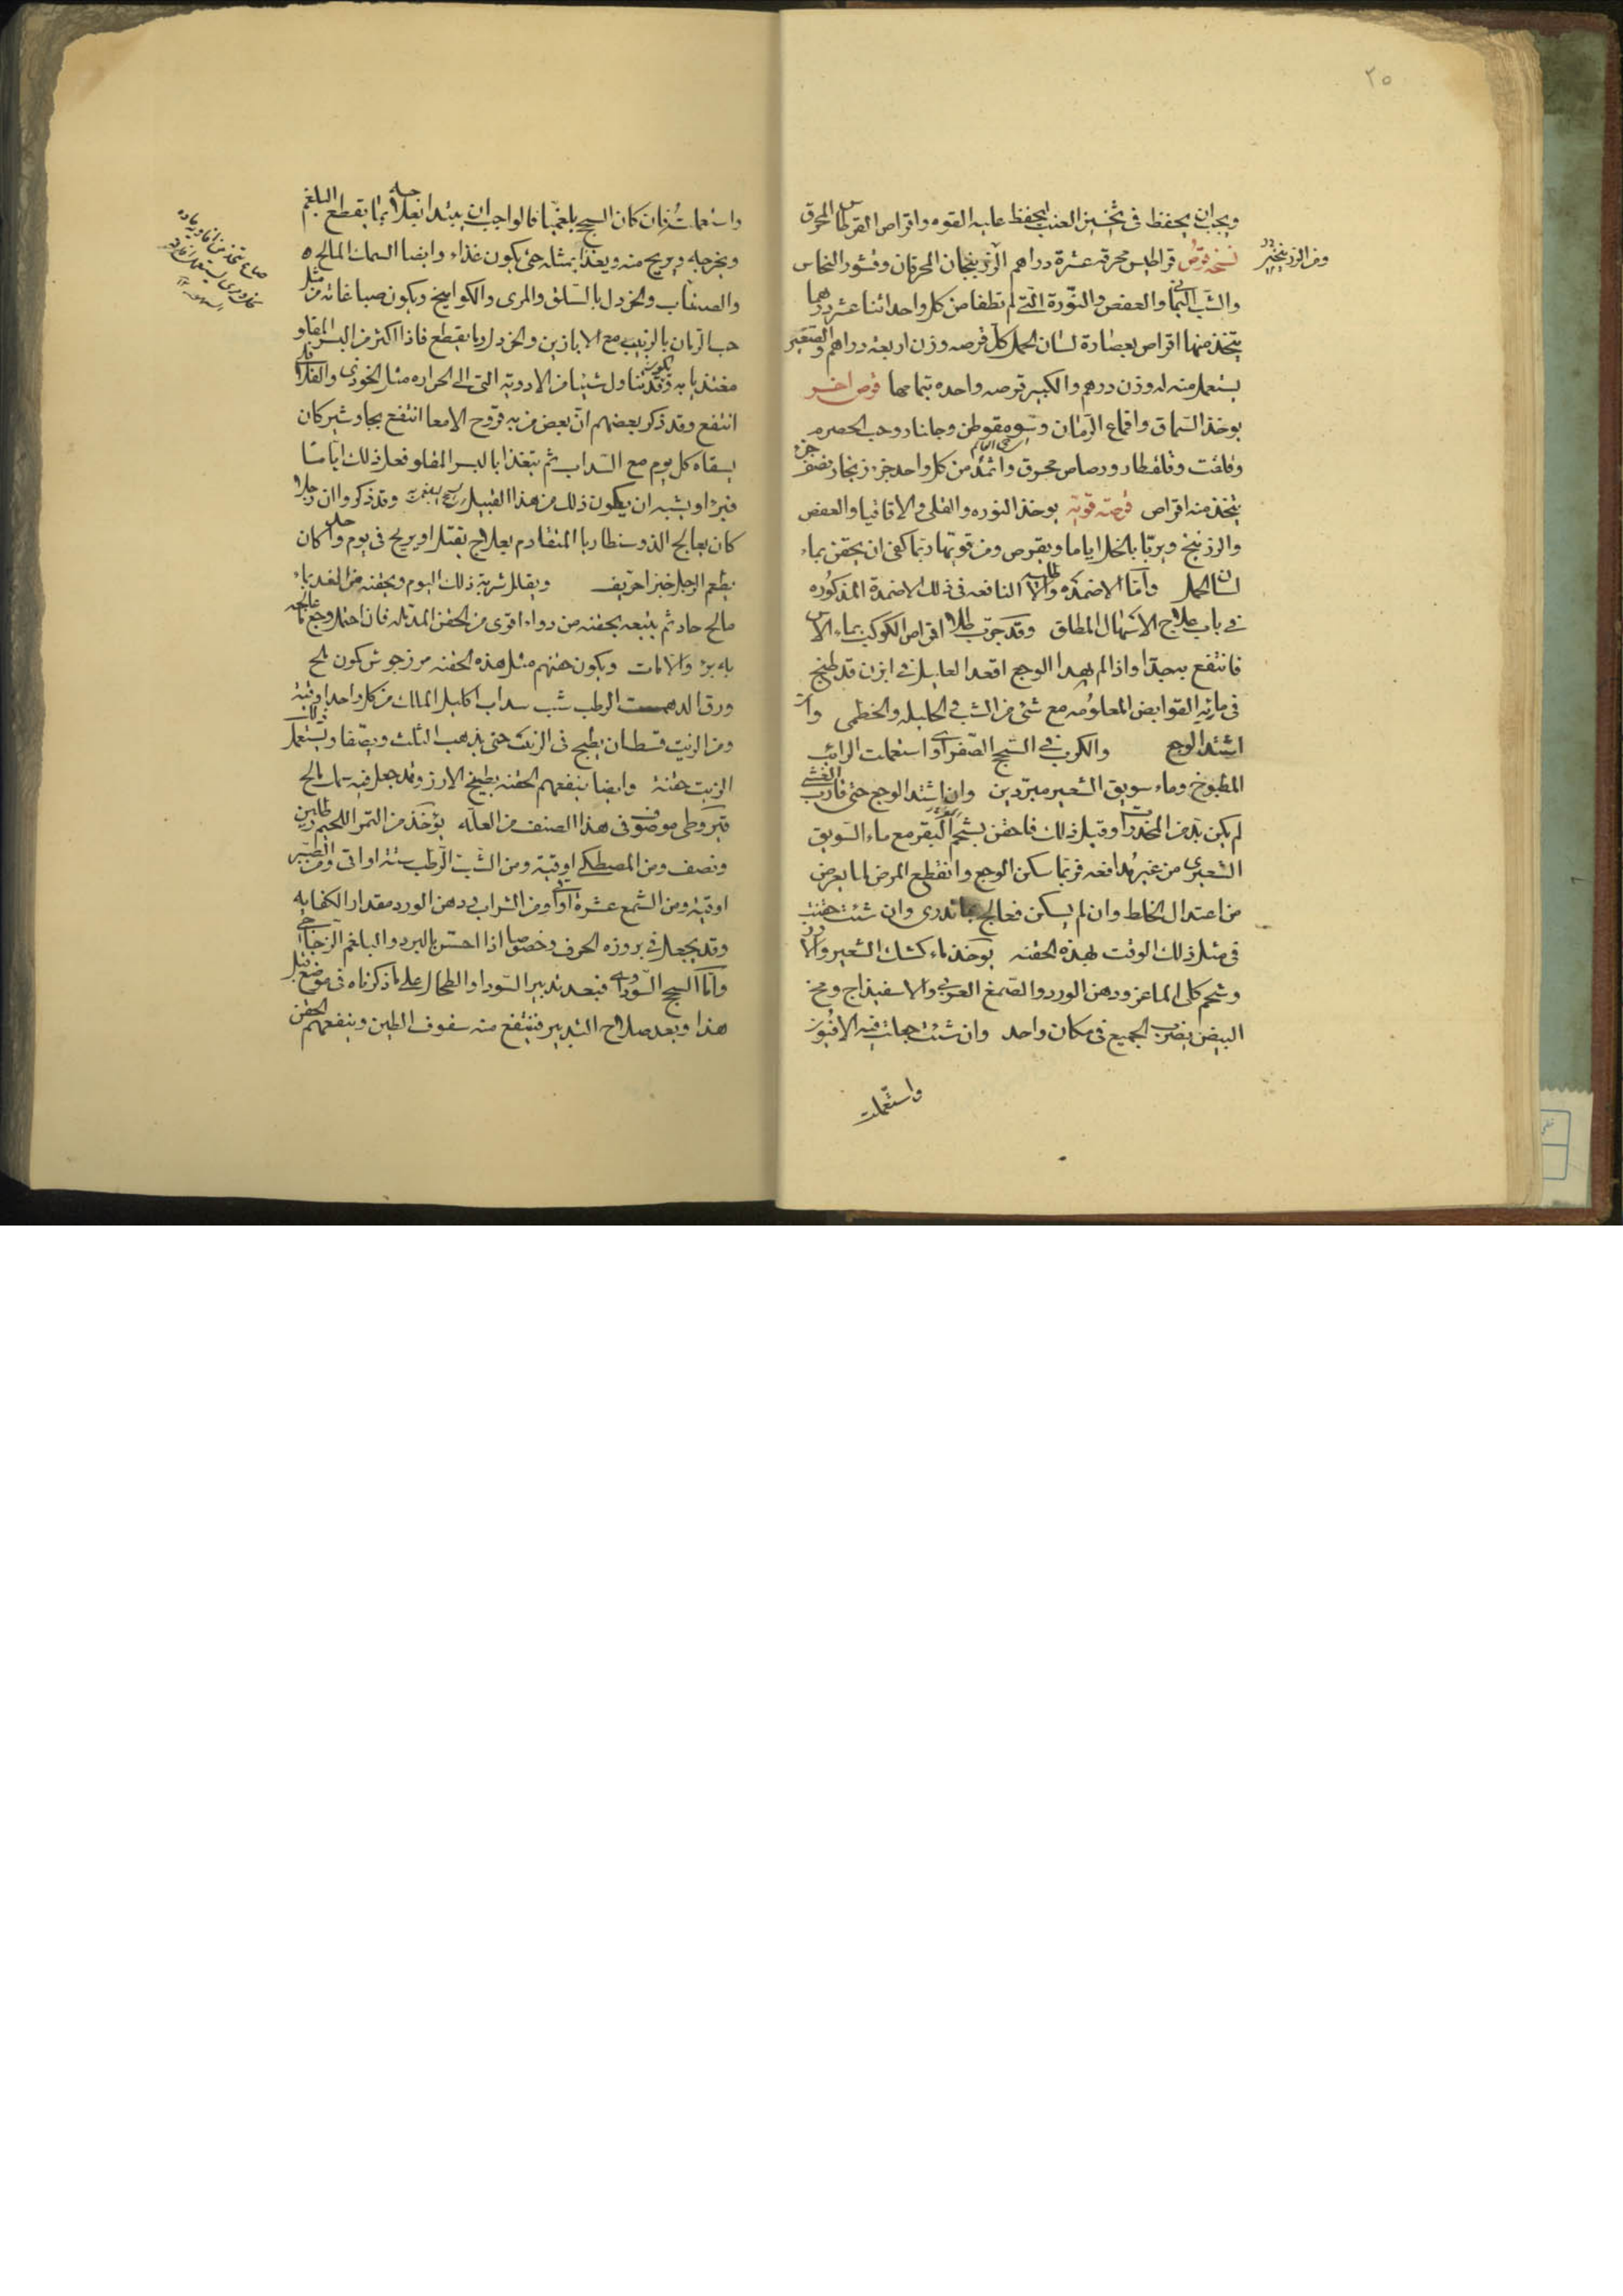 ٢٥
ويجب ان يحفظ في تخبيز العنب ليحفظ عليه القوه واقراص القرطاس المحرق
ومن الزرنيخين
نسخه قرص قراطيس محرقه عشرة دراهم الزرنيخان المحرقان وقشور النحاس
والشب اليماني والعفص والنورة التي لم تطفا من كل واحد اثنا عشر درهما
يتخذ منها اقراص بعصارة لسان الحمل كل قرصه وزن اربعه دراهم والصغير
يستعمل منه وزن درهم والكبير قرصه واحده بتمامها قرص اخر
يوخذ السماق واقماع الرمان وجلنار وحب الحصرم
وقلقنت وقلقطار ورصاص محرق واثمد من كل واحد جزء زنجار نصف جزء
يتخذ منه اقراص قرصه قويه يوخذ النوره والقلي والاقاقيا والعفص
والزرنيخ ويربا بالخل اياما ويقرص ومن قوتها ربما كفى ان يحقن بماء
لسان الحمل واما الاضمده والاطليه النافعه في ذلك الاضمدة المذكوره
في باب علاج الاسهال المطلق وقد جرب طلاء اقراص الكوكب بماء الاس
فانتفع به جدا واذا لم يهدا الوجع اقعد العليل في ابزن قد طبخ
في مائه القوابض المعلومه مع شئ من الشبث والحلبه والخطمى واذا
اشتد الوجع والكرب في السحج الصفراوى استعملت الرائب
المطبوخ وماء سويق الشعير مبردين وان اشتد الوجع حتى قارب الغشى
لم يكن بد من المخدرات وقبل ذلك فاحقن بشحم البقر مع ماء السويق
الشعيرى من غير مدافعه فربما سكن الوجع وانقطع المرض لما يعرض
من اعتدال الخلط وان لم يسكن فعالج بما تدرى وان شئت حقنت
في مثل ذلك الوقت بهذه الحقنه يوخذ ماء كشك الشعير والارز
وشحم كلى الماعز ودهن الورد والصمغ العربى والاسفيذاج ومخ
البيض يضرب الجميع في مكان واحد وان شئت جعلت فيه الافيون
واستعملت
واستعملت فان كان السحج بلغميا فالواجب ان يبتدا بعلاجه بما يقطع البلغم
ويخرجه ويريح منه ويغذا بمثله حتى يكون غذاء وايضا السمك المالح
والصناب والخردل بالسلق والمرى والكواميخ ويكون صباغاته من مثل
حب الرمان بالزبيب مع الابازير والخردل وما يقطع فاذا اكثر من البسر المقلو
مغتذيا به وقد تناول شيئا من الادويه التى الى الحراره مثل الخوزى والفلافلى
انتفع وقد ذكر بعضهم ان بعض من به قروح الامعا انتفع بجاوشير كان
يسقاه كل يوم مع السداب ثم يتغذا بالبسر المقلو فعل ذلك اياما
فبرا ويشبه ان يكون ذلك من هذا القبيل وقد ذكروا ان رجلا
كان يعالج الذوسنطاريا المتقادم بعلاج يقتل او يريح في يوم واحد كان
يطعم الرجل خبزا حريف ويقلل شربه ذلك اليوم ويحقنه من الغد بماء
مالح حار ثم يتبعه بحقنه من دواء اقوى من الحقن المدمله فان احتمل وجع علاجه
بله برء والا مات ويكون حقنهم مثل هذه الحقنه مرزجوش كمون ملح
ورق الدهمست الرطب شبث سداب اكليل الملك من كل واحد اوقيه
ومن الزيت قسطان يطبخ في الزيت حتى يذهب الثلث ويصفا ويستعمل ذلك
الزيت حقنة وايضا ينفعهم الحقنه بطبيخ الارز وقد جعل فيه سمك مالح
قيروطى موصوف في هذا الصنف من العله يؤخذ من التمر اللحيم رطلين
ونصف ومن المصطكى اوقيه ومن الشبث الرطب ستة اواقى ومن الصبر
اوقيه ومن الشمع عشرة اواق ومن الشراب ودهن الورد مقدار الكفايه
وقد يجعل في بروزه الحرف وخصوصا اذا احس بالبرد والبلغم الزجاجى
واما السحج السوداوى فبعد تدبير السودا والطحال على ما ذكرناه في موضع قبل
هذا وبعد صلاح التدبير فينتفع منه سفوف الطين وينفعهم الحقن